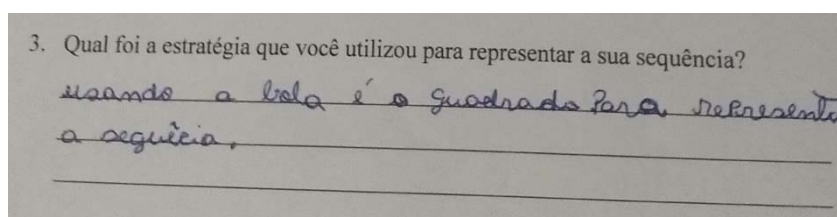 3. Qual foi a estratégia que você utilizou para representar a sua sequência?
usando a bola é o quadrado Para representa
a seguêcia.